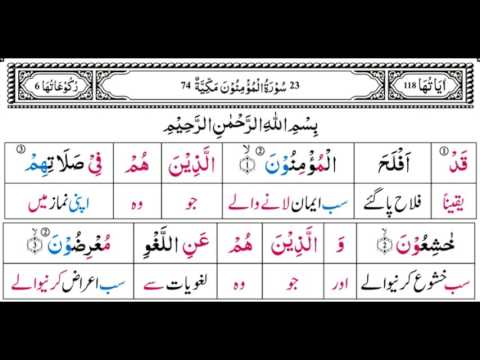 اٰيَاتُهَا 118 23 سُوْرَةُ الْمُؤْمِنُوْنَ مَكِّيَّةٌ 74 رُكُوْعَاتُهَا 6
بِسْمِ اللّٰهِ الرَّحْمٰنِ الرَّحِيْمِ
قَدْ اَفْلَحَ الْمُؤْمِنُوْنَ ۙ ١ الَّذِيْنَ هُمْ فِيْ صَلَاتِهِمْ
یقیناً فلاح پا گئے سب ایمان لانے والے جو وہ اپنی نماز میں
خٰشِعُوْنَ ۙ ٢ وَ الَّذِيْنَ هُمْ عَنِ اللَّغْوِ مُعْرِضُوْنَ ۙ ٣
سب خشوع کرنیوالے اور جو وہ لغویات سے سب اعراض کرنیوالے